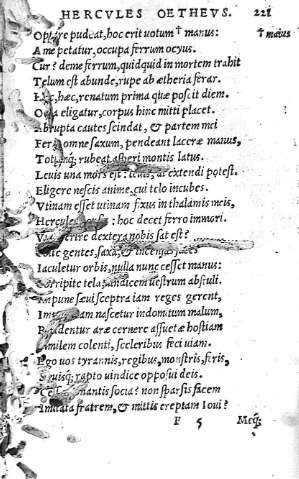 HERCVLES OETHEVS. 221
pudeat, hoc erit uotum † manus: † maius
A me petatur, occupa ferrum ocyus.
Cur? deme ferrum, quidquid in mortem trahit
Telum est abunde, rupe ab ætheria ferar.
hæc, renatum prima quæ poscit diem.
eligatur, corpus hinc mitti placet.
Abrupta cautes scindat, & partem mei
omne saxum, pendeant laceræ manus,
rubeat asperi montis latus.
Leuis una mors est: extendi potest.
Eligere nescis anime, cui telo incubes.
Vtinam esset utinam fixus in thalamis meis,
Hercul : hoc decet ferro immori.
dextera nobis sat est?
gentes, saxa, &
Iaculetur orbis, nulla nunc cesset manus:
Corripite tela, uindicem uestrum abstuli.
Impune sæui sceptra iam reges gerent,
nascetur indomitum malum,
aræ cernere assuetæ hostiam
Similem colenti, sceleribus feci uiam.
Ego uos tyrannis, regibus, monstris, feris,
rapto uindice opposui deis.
socia? non sparsis facem
Imitata fratrem, & mittis ereptam Ioui?
F 5 Meq́;